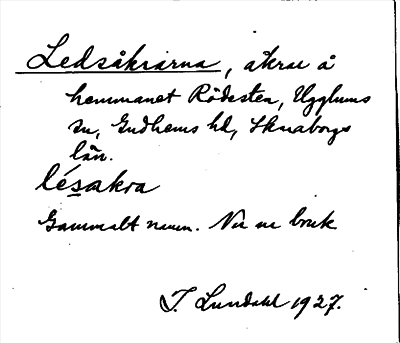 Ledsåkrarna, åkrar å
hemmanet Rödesten, Ugglums
sn, Gudhems hd, Skaraborgs
län.
lésakra
Gammalt namn. Nu ur bruk
I. Lundahl 1927.